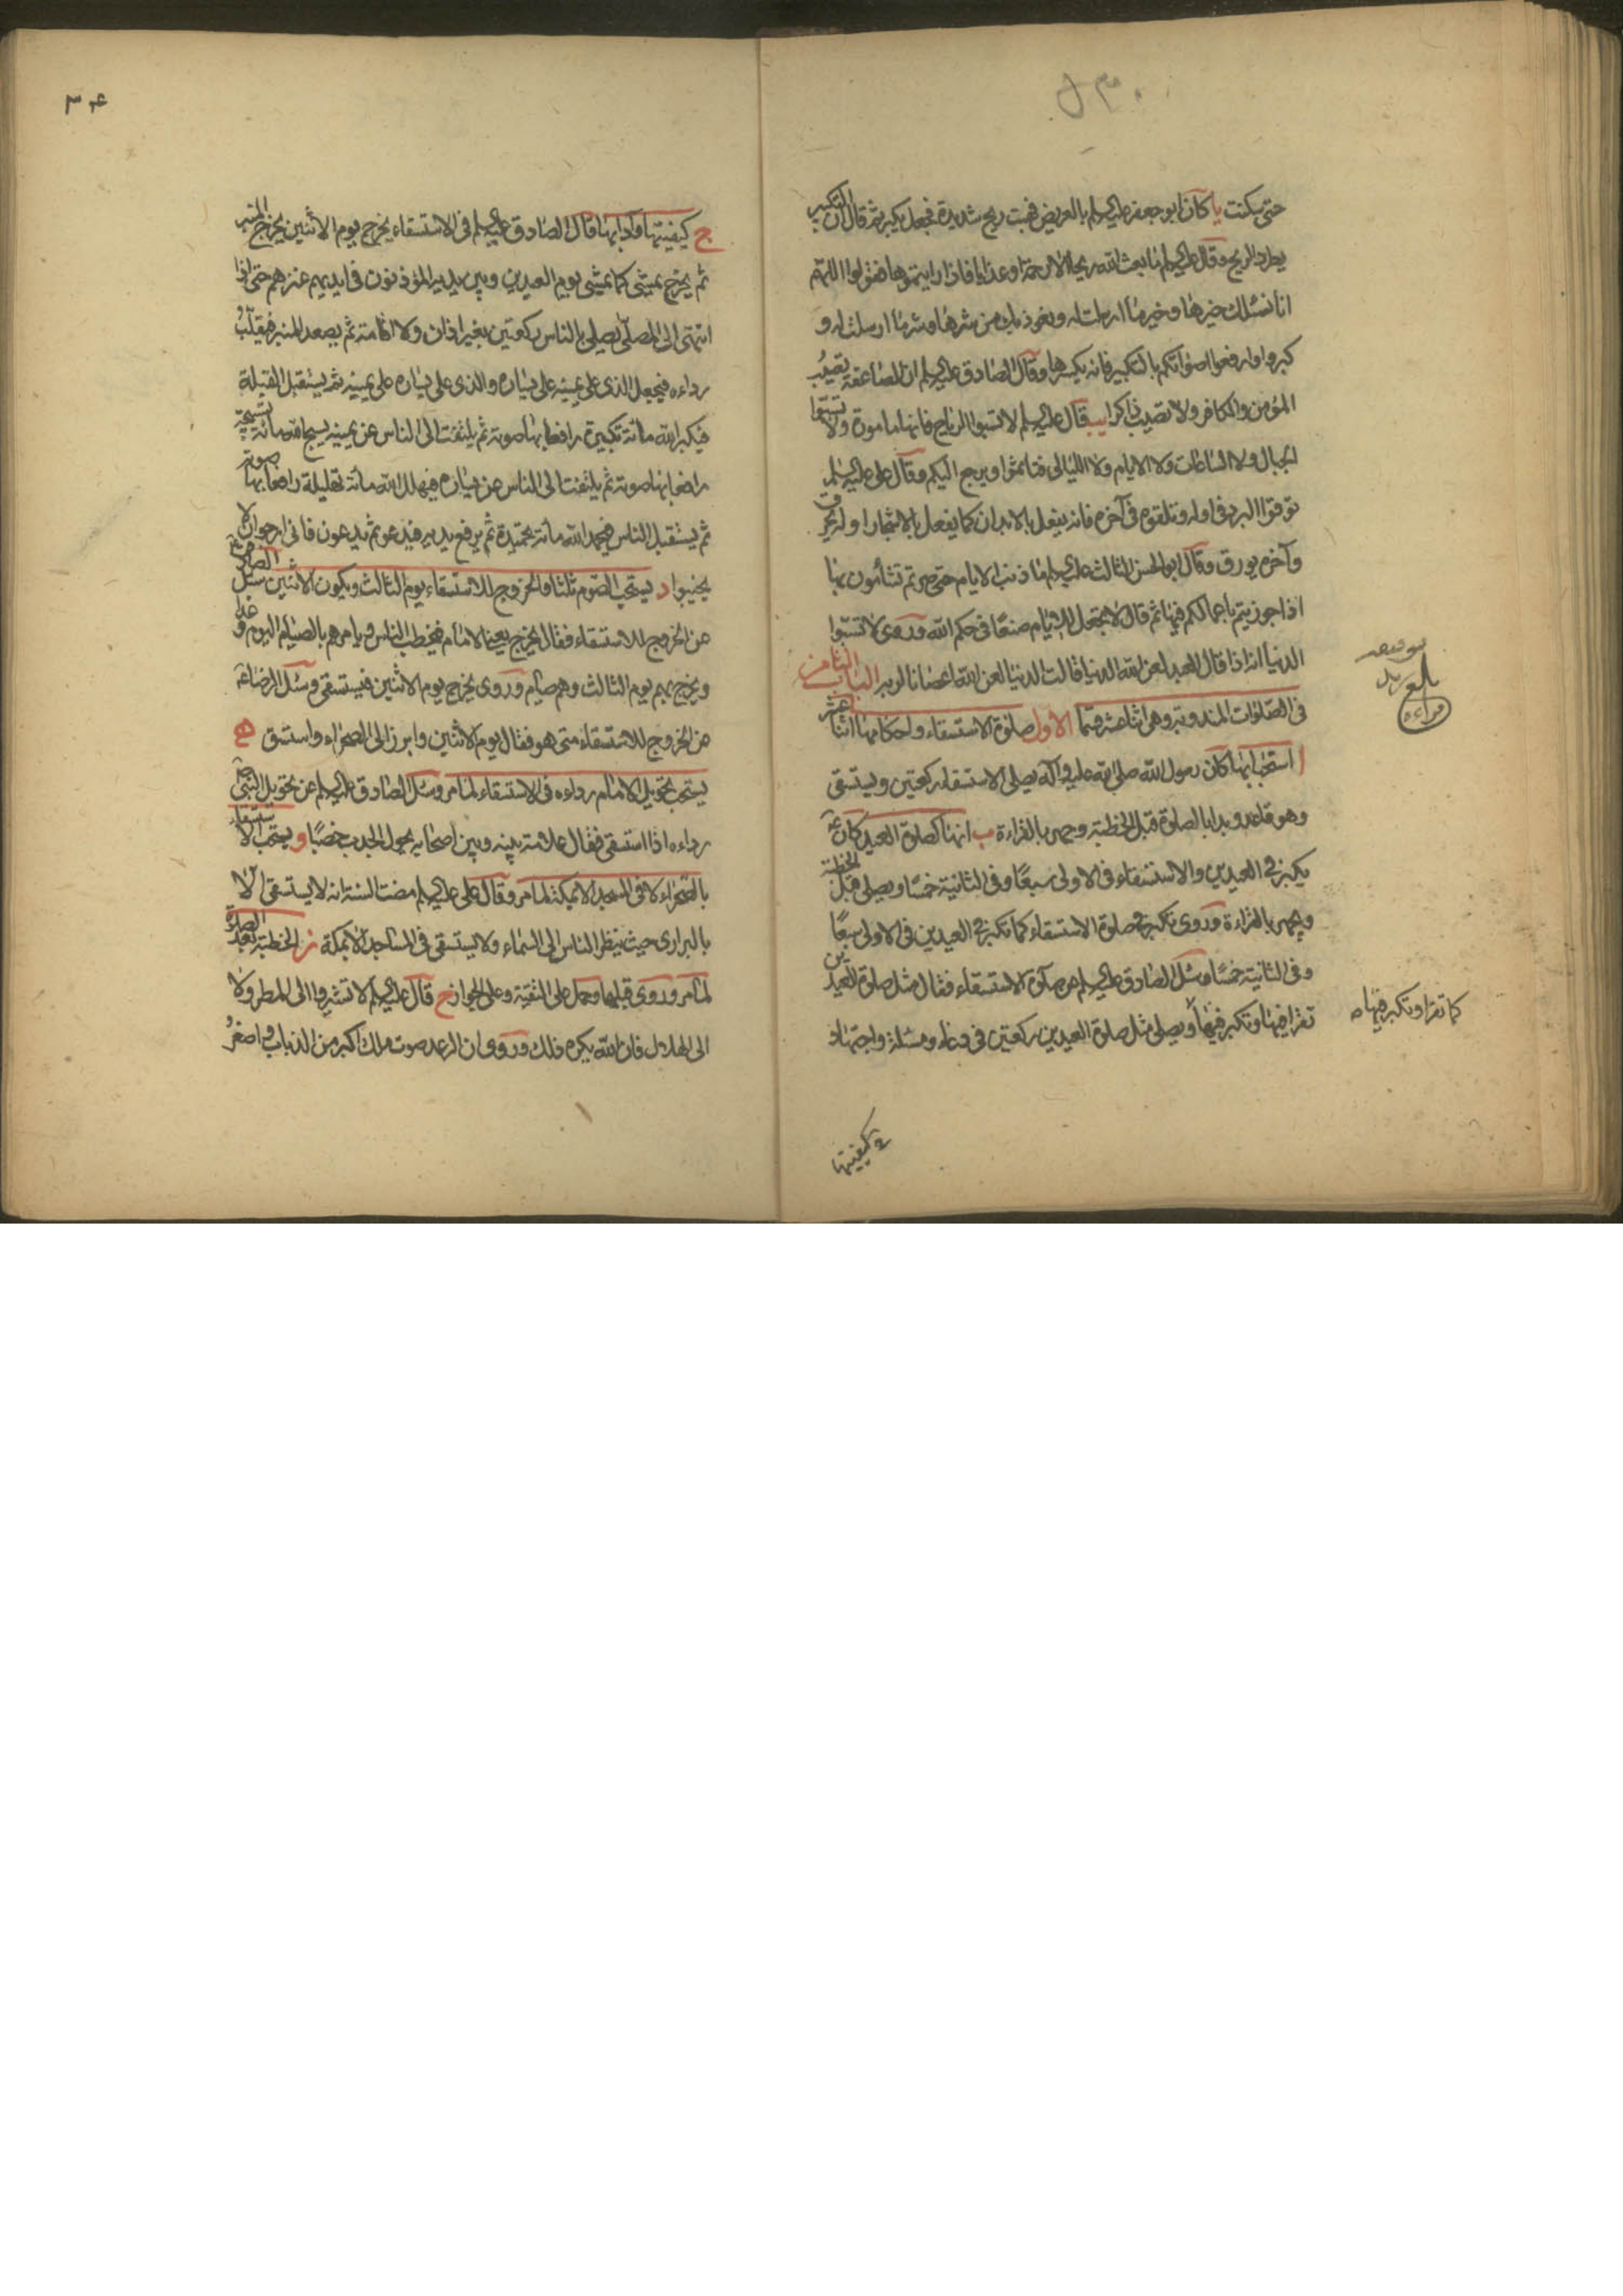 حتى سكنت يا كان ابو جعفر عليه السلم بالعريض فهبت ريح شديدة فجعل يكبر ثم قال ان التكبير
يطرد الريح وقال عليه السلم ما بعث الله ريحا الا رحمة او عذابا فاذا رايتموها فقولوا اللهم
انا نسئلك خيرها وخير ما ارسلت له ونعوذ بك من شرها وشر ما ارسلت له و
كبروا وارفعوا اصواتكم بالتكبير فانه يكسرها وقال الصادق عليه السلم ان الصاعقة تصيب
المؤمن والكافر ولا تصيب ذاكرا يب قال عليه السلم لا تسبوا الرياح فانها مامورة ولا تسبوا
الجبال ولا الساعات ولا الايام ولا الليالى فتاثموا ويرجع اليكم وقال على عليه السلم
توقوا البرد فى اوله وتلقوه فى آخره فانه يفعل بالابدان كما يفعل بالاشجار اوله يحرق
وآخره يورق وقال ابو الحسن الثالث عليه السلم ما ذنب الايام حتى صرتم تشأمون بها
اذا جوزيتم باعمالكم فيها ثم قال لا تجعل للايام صنعا فى حكم الله وروى لا تسبوا
الدنيا انه اذا قال العبد لعن الله الدنيا قالت الدنيا لعن الله اعصانا لربه الباب الثامن
فى الصلوات المندوبة وهى اثنا عشر قسما الاول صلوة الاستسقاء واحكامها اثنا عشر
ا استحبابها كان رسول الله صلى الله عليه وآله يصلى الاستسقاء ركعتين ويستسقى
وهو قاعد وبدا بالصلوة قبل الخطبة وجهر بالقراءة ب انها كصلوة العيد كان ع
يكبر فى العيدين والاستسقاء فى الاولى سبعا وفى الثانية خمسا ويصلى قبل الخطبة
ويجهر بالقراءة وروى تكبر فى صلوة الاستسقاء كما تكبر فى العيدين فى الاولى سبعا
وفى الثانية خمسا وسئل الصادق عليه السلم عن صلوة الاستسقاء فقال مثل صلوة العيدين
تقرا فيها وتكبر فيها ويصلى مثل صلوة العيدين ركعتين فى دعاء ومسئلة واجتهاد
بلغ
قراءة
كما تقرا وتكبر فيها
كيفيتها
٣٠٤
ج كيفيتها وآدابها قال الصادق عليه السلم فى الاستسقاء يخرج يوم الاثنين يخرج المنبر
ثم يخرج يمشى كما يمشى يوم العيدين وبين يديه المؤذنون فى ايديهم عنزهم حتى اذا
انتهى الى المصلى يصلى بالناس ركعتين بغير اذان ولا اقامة ثم يصعد المنبر فيقلب
رداءه فيجعل الذى على يمينه على يساره والذى على يساره على يمينه ثم يستقبل القبلة
فيكبر الله مائة تكبيرة رافعا بها صوته ثم يلتفت الى الناس عن يمينه يسبح الله مائة تسبيحة
رافعا بها صوته ثم يلتفت الى الناس عن يساره فيهلل الله مائة تهليلة رافعا بها صوته
ثم يستقبل الناس فيحمد الله مائة تحميدة ثم يرفع يديه فيدعو ثم يدعون فانى ارجو ان لا
يخيبوا د يستحب الصوم ثلثا والخروج للاستسقاء يوم الثالث ويكون الاثنين سئل الصادق ع
عن الخروج للاستسقاء فقال يخرج يعنى الامام فيخطب الناس ويامرهم بالصيام اليوم وغدا
ويخرج بهم يوم الثالث وهم صيام وروى يخرج يوم الاثنين فيستسقى وسئل الرضا ع
عن الخروج للاستسقاء متى هو فقال يوم الاثنين وابرز الى الصحراء واستسق ه
يستحب تحويل الامام رداءه فى الاستسقاء لما مر وسئل الصادق عليه السلم عن تحويل النبى ص
رداءه اذا استسقى فقال علامة بينه وبين اصحابه يحول الجدب خصبا و يستحب الاستسقاء
بالصحراء لا فى المسجد الا بمكة لما مر وقال على عليه السلم مضت السنة انه لا يستسقى الا
بالبرارى حيث ينظر الناس الى السماء ولا يستسقى فى المساجد الا بمكة ز الخطبة بعد الصلوة
لما مر وروى قبلها وحمل على التقية وعلى الجواز ح قال عليه السلم لا تشيروا الى المطر ولا
الى الهلال فان الله يكره ذلك وروى ان الرعد صوت ملك اكبر من الذباب واصغر